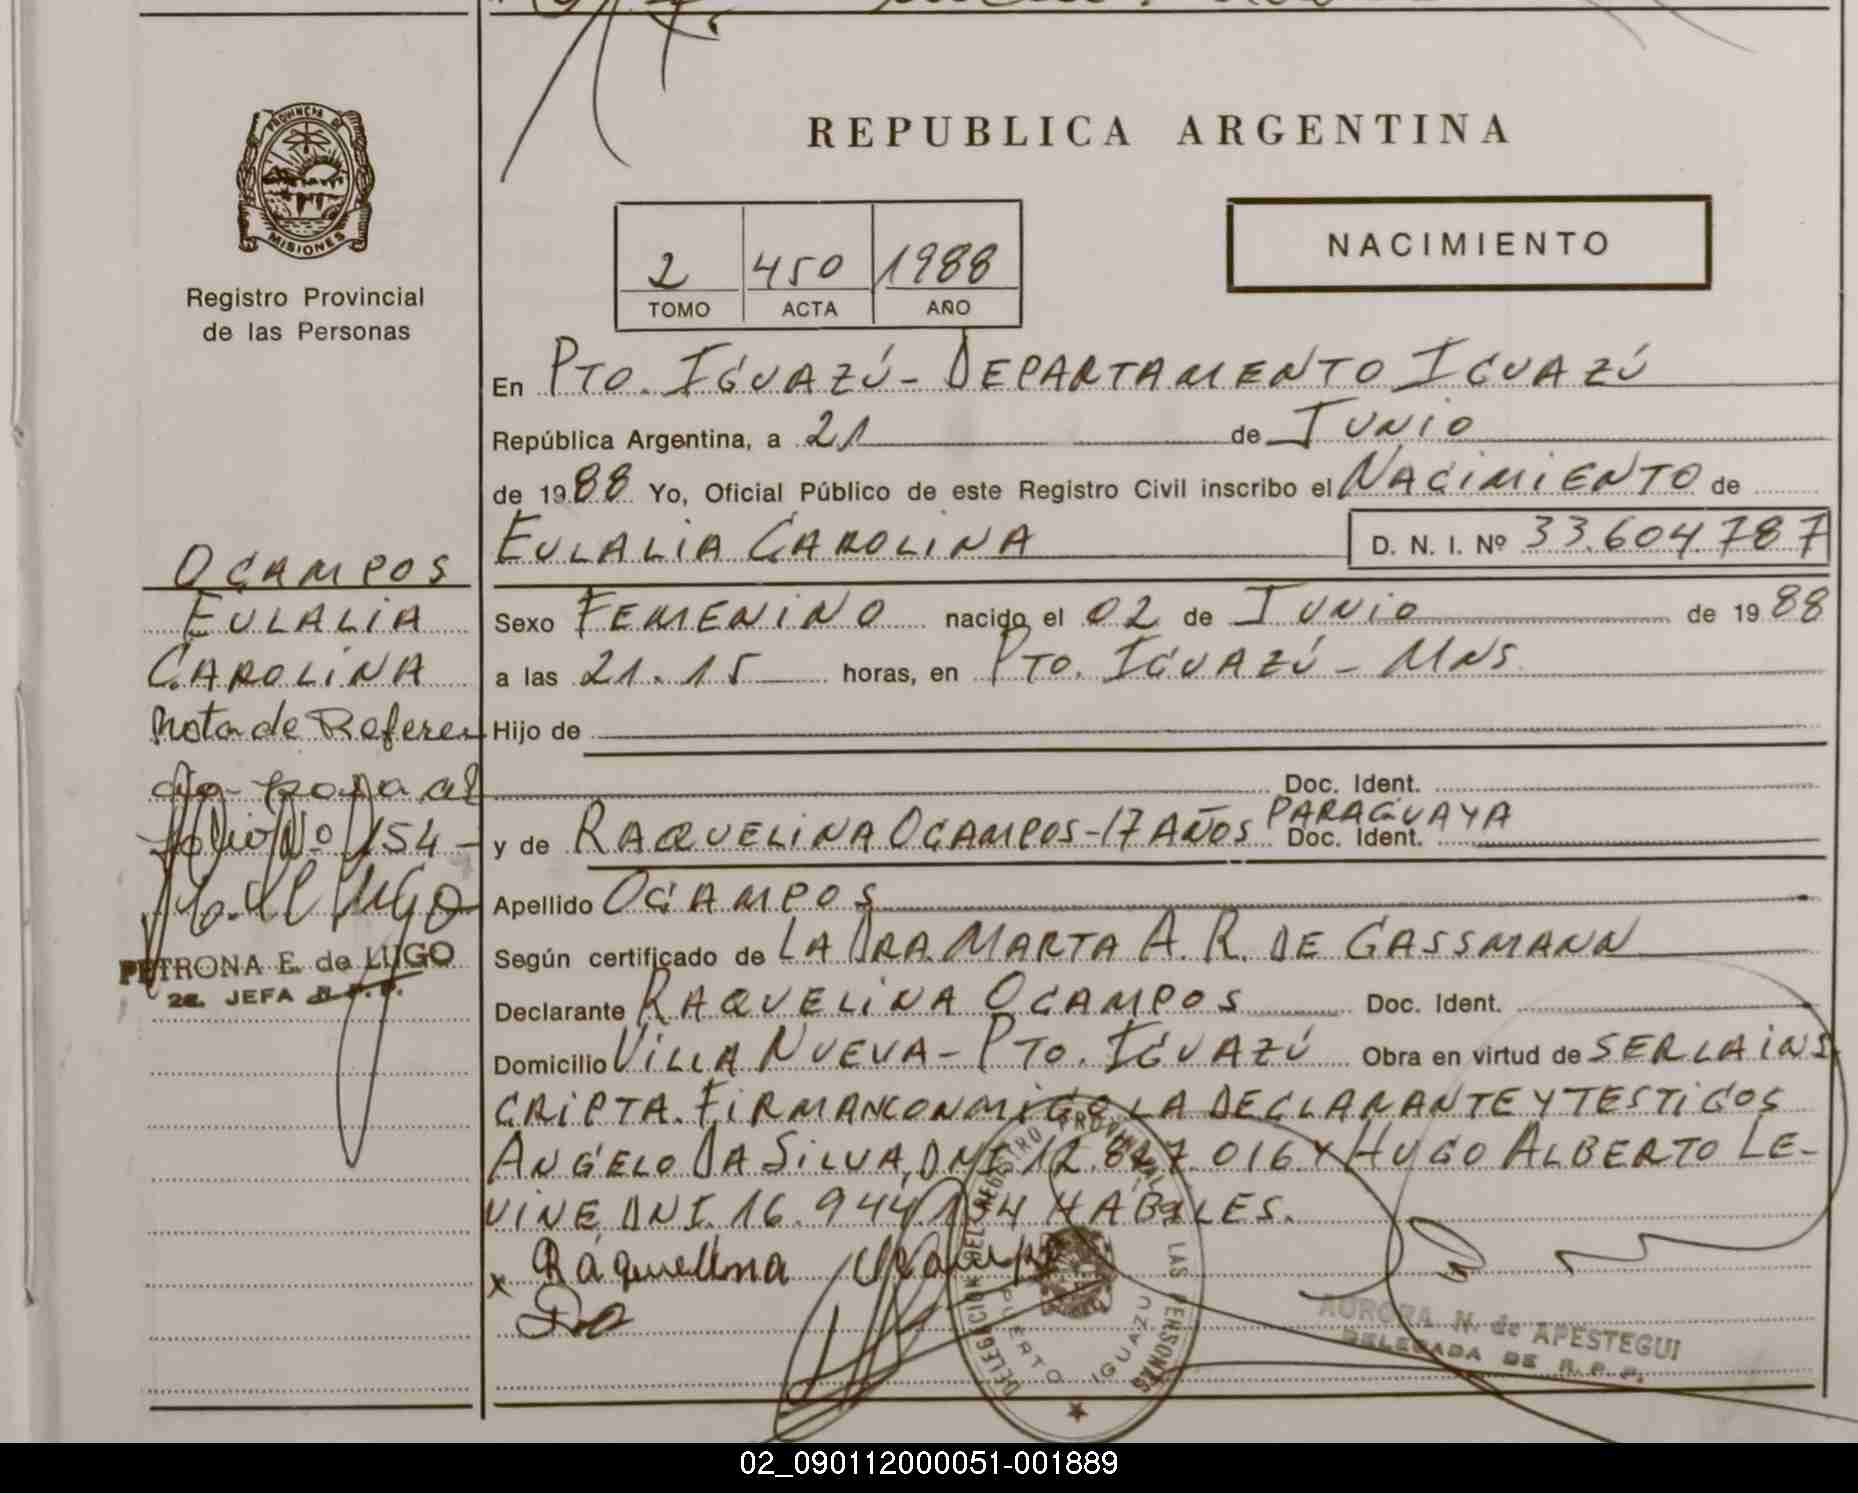 REPUBLICA ARGENTINA
PROVINCIA DE
MISIONES
Registro Provincial
de las Personas
2 450 1988
TOMO ACTA AÑO
NACIMIENTO
En PTO. IGUAZÚ - DEPARTAMENTO IGUAZÚ
República Argentina, a 21 de JUNIO
de 1988 Yo, Oficial Público de este Registro Civil inscribo el NACIMIENTO de
EULALIA CAROLINA D. N. I. Nº 33.604.787
Sexo FEMENINO nacido el 02 de JUNIO de 1988
a las 21.15 horas, en PTO. IGUAZÚ - MNS
Hijo de
Doc. Ident.
y de RAQUELINA OCAMPOS - 17 AÑOS PARAGUAYA Doc. Ident.
Apellido OCAMPOS
Según certificado de LA DRA. MARTA A. R. DE GASSMANN
Declarante RAQUELINA OCAMPOS Doc. Ident.
Domicilio VILLA NUEVA - PTO. IGUAZÚ Obra en virtud de SER LA INS
CRIPTA. FIRMAN CONMIGO LA DECLARANTE Y TESTIGOS
ANGELO DA SILVA, DNI 12.847.016 Y HUGO ALBERTO LE-
VINE, DNI. 16.944.194 HABILES.
x Raquelina Ocampos
OCAMPOS
EULALIA
CAROLINA
Nota de Referen
cia pasa al
folio Nº 154 -
PETRONA E. de LUGO
2a. JEFA R.P.P.
DELEGACION DEL REGISTRO PROVINCIAL DE LAS PERSONAS
PUERTO IGUAZU
AURORA N. de APESTEGUI
DELEGADA DE R.P.P.
02_090112000051-001889